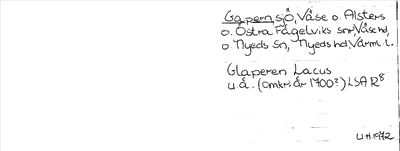 Gapern, sjö, Väse o. Alsters
o. Östra Fågelviks snr, Väse hd,
o Nyeds sn, Nyeds hd, Värml. l.
Glaperen Lacus
u.å. (omkr. år 1700?) LSA R8
LH 1972